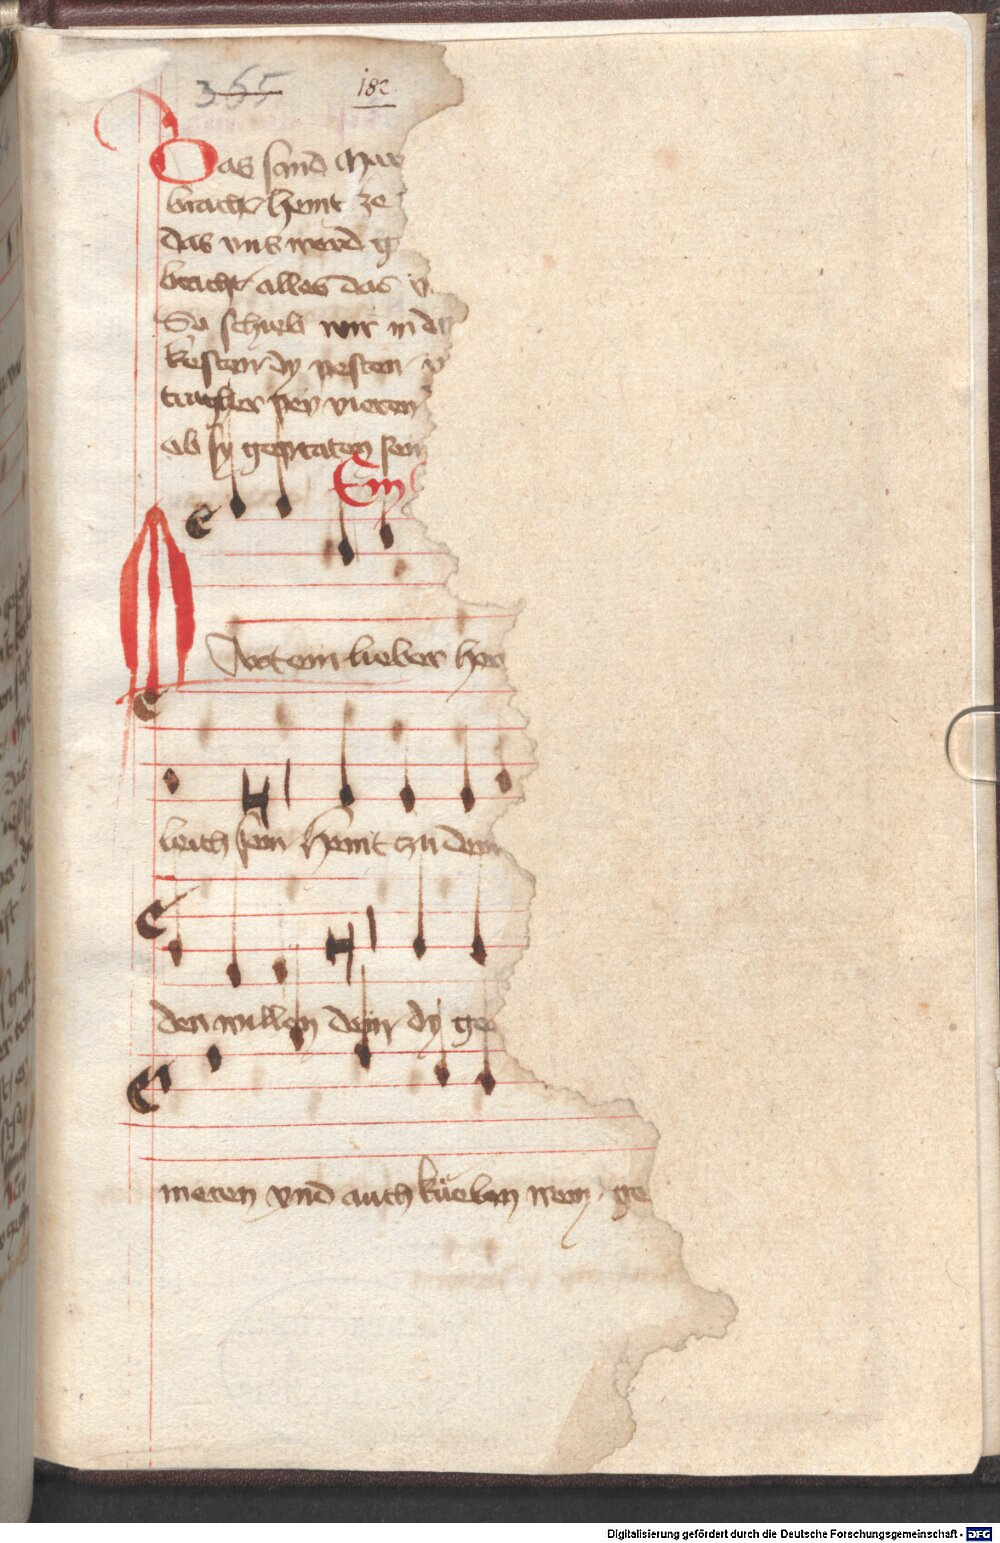 365 182
Das sand Mar
bracht heint ze
das vns werd g
bracht alles das v
So schieb wir in dy
kesten dy pesten v
trugher pey vieren
ob sy gepraten sein
Ein
Martein lieber her
leich sein heint zu dem
den willen dein dy ge
meren vnd auch küelen wein ge
Digitalisierung gefördert durch die Deutsche Forschungsgemeinschaft - DFG